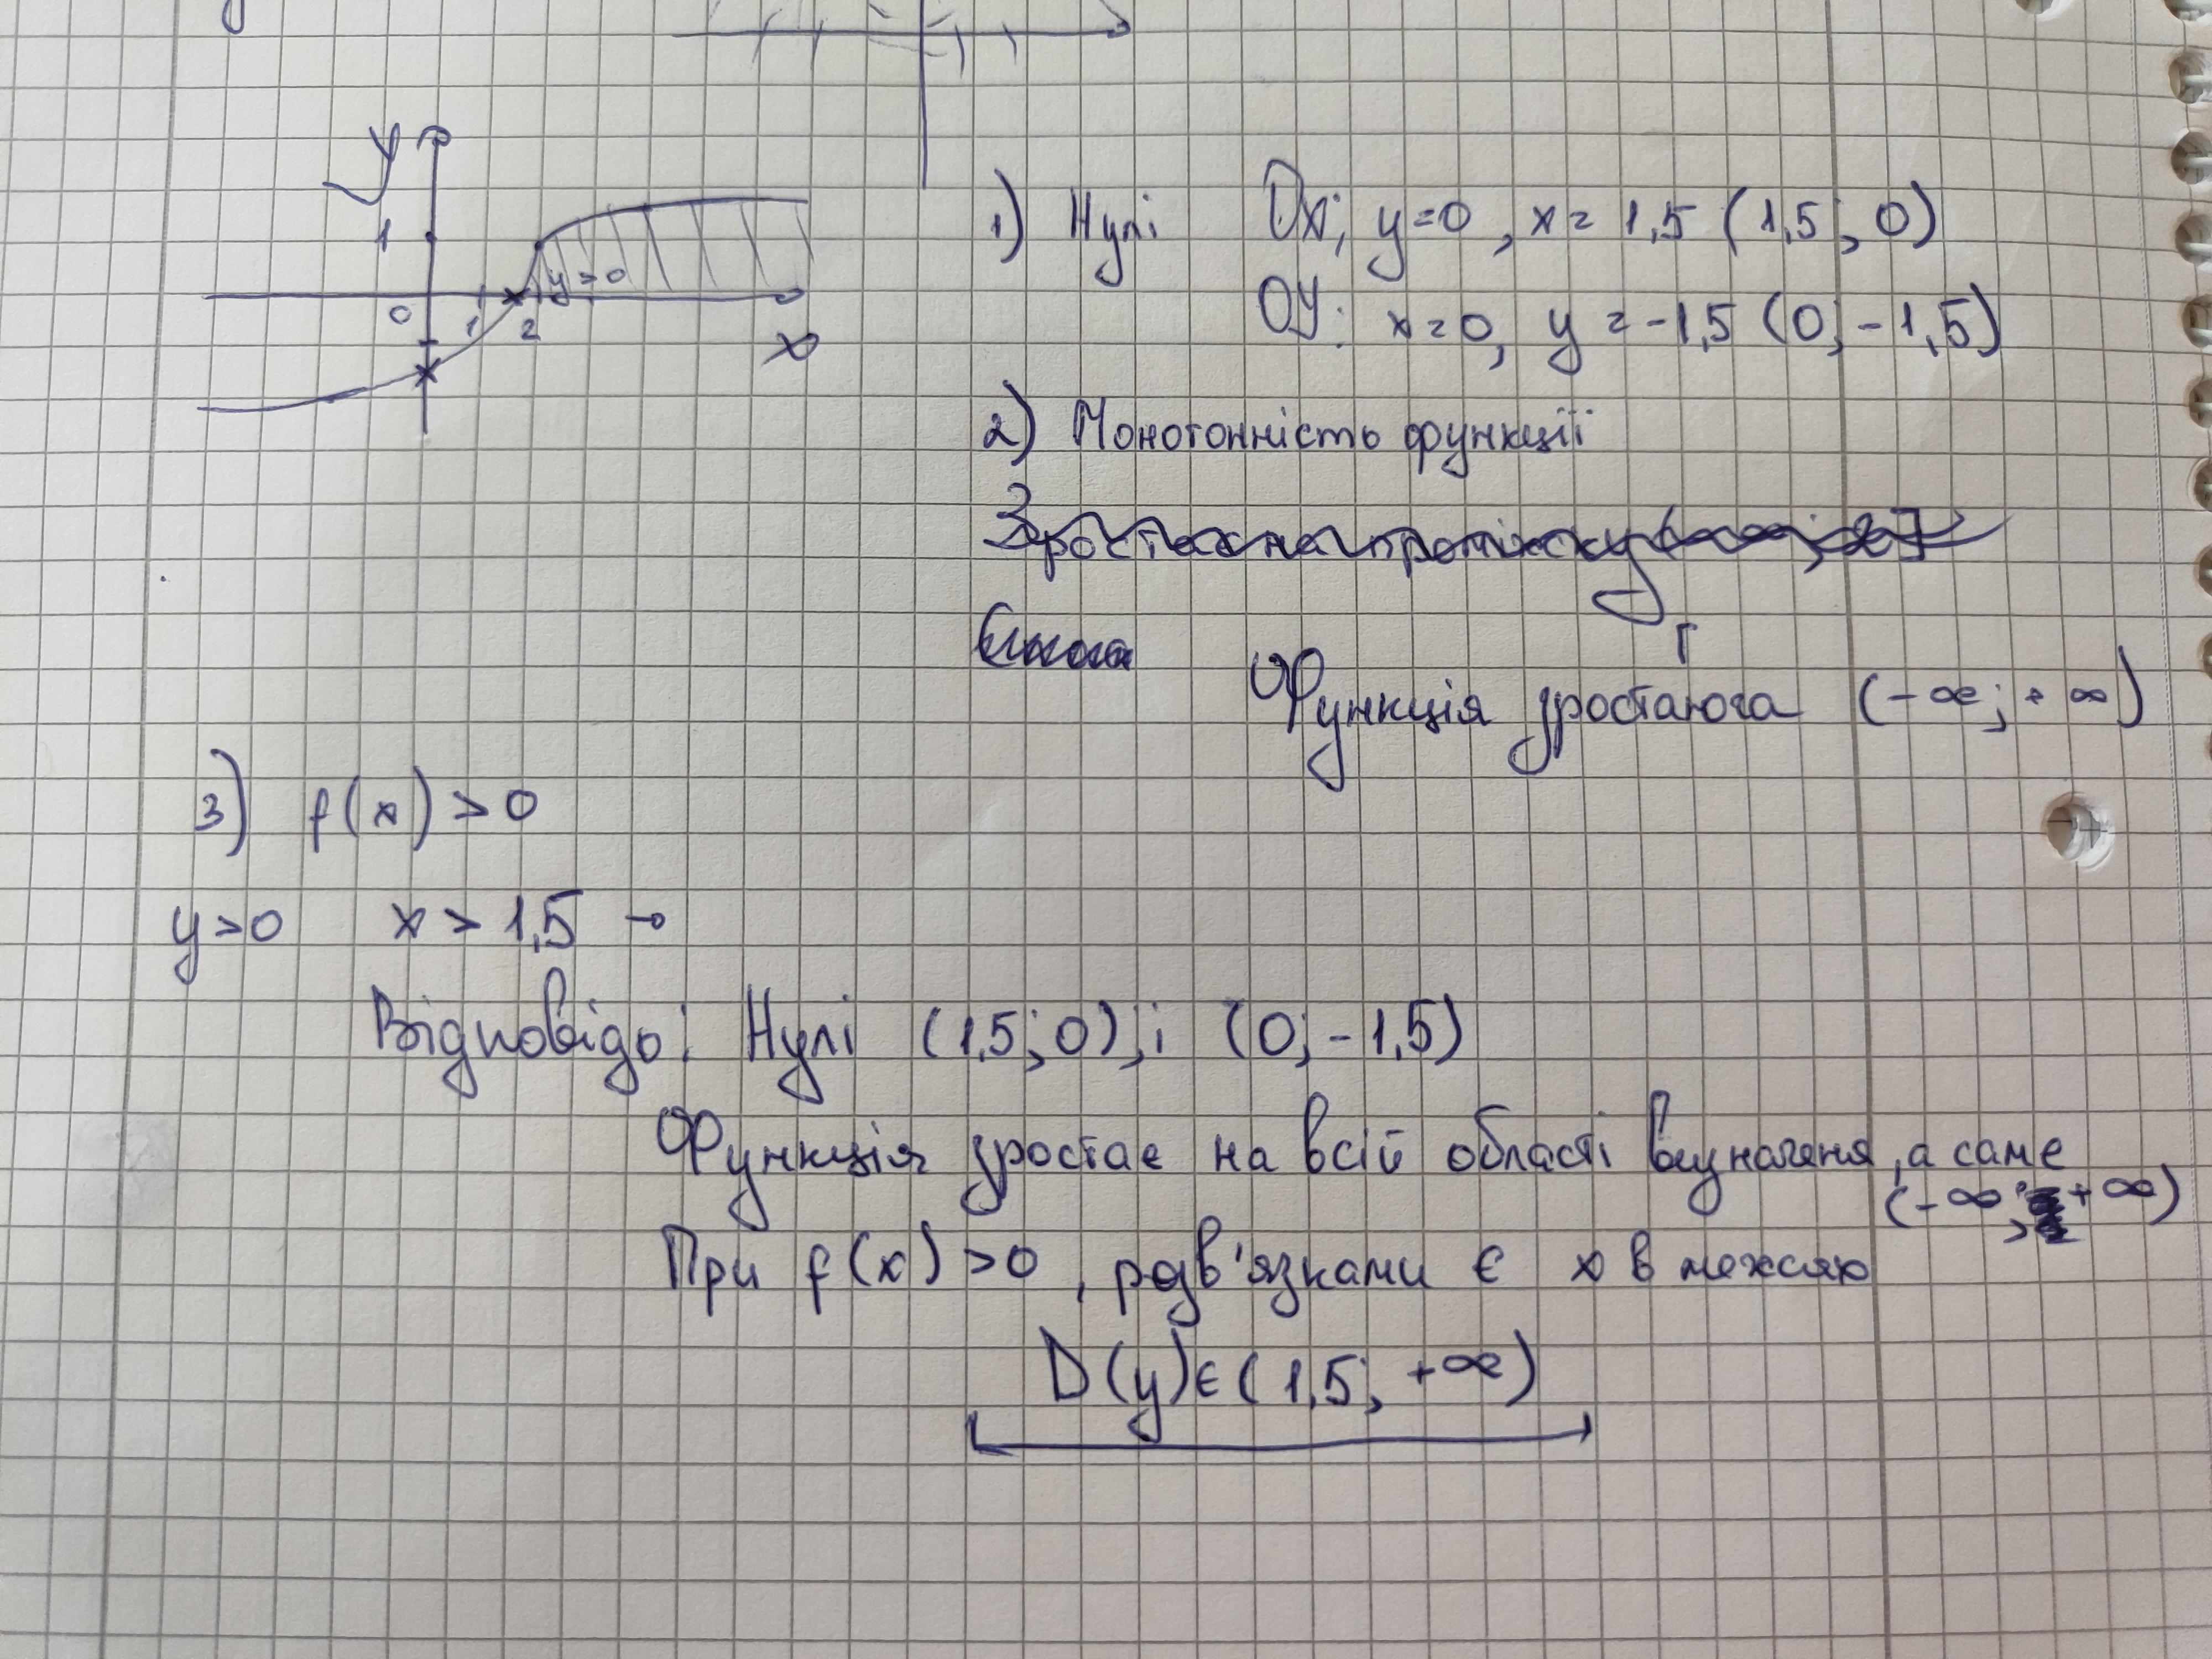 y
1
y > 0
0
1
2
x
1) Нулі Ox; y=0, x = 1,5 (1,5; 0)
OY: x=0, y = -1,5 (0; -1,5)
2) Монотонність функції
Зростає на проміжку (-∞; 2]
Функція зростаюча (-∞; +∞)
3) f(x) > 0
y>0 x > 1,5 →
Відповідь: Нулі (1,5; 0); і (0; -1,5)
Функція зростає на всій області визначеня, а саме
(-∞; +∞)
При f(x) >0, розв'язками є x в межах
D(y)є(1,5; +∞)